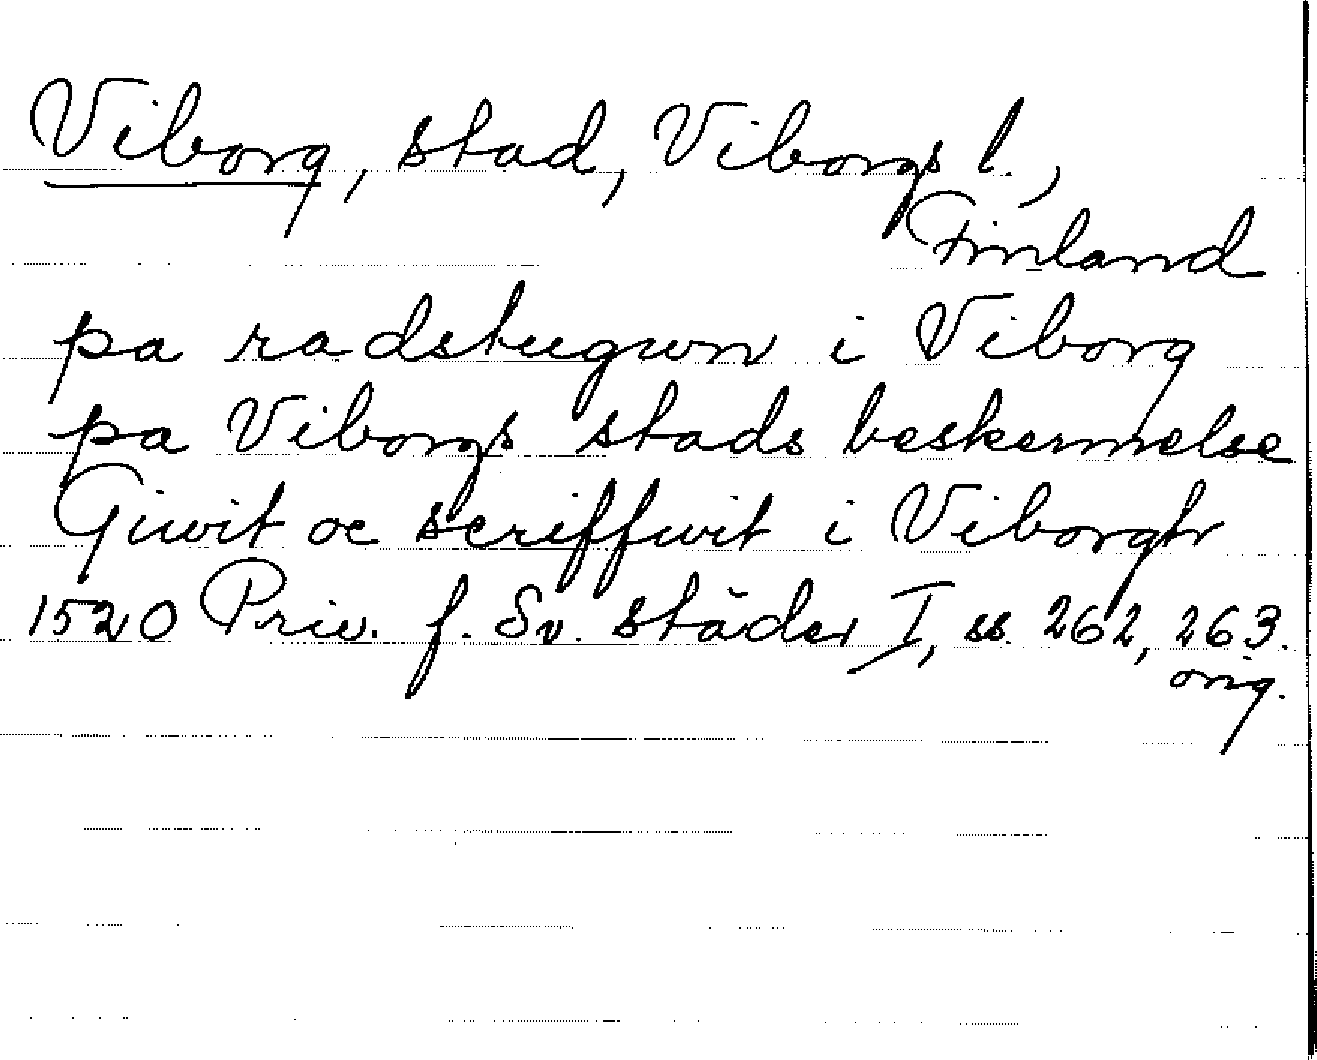 Viborg, stad, Viborgs l.,
Finland
pa radstugwn i Viborg
pa Viborgs stads beskermelse
Giwit oc scriffwit i Viborgh
1520 Priv. f. Sv. städer I, ss. 262, 263.
orig.